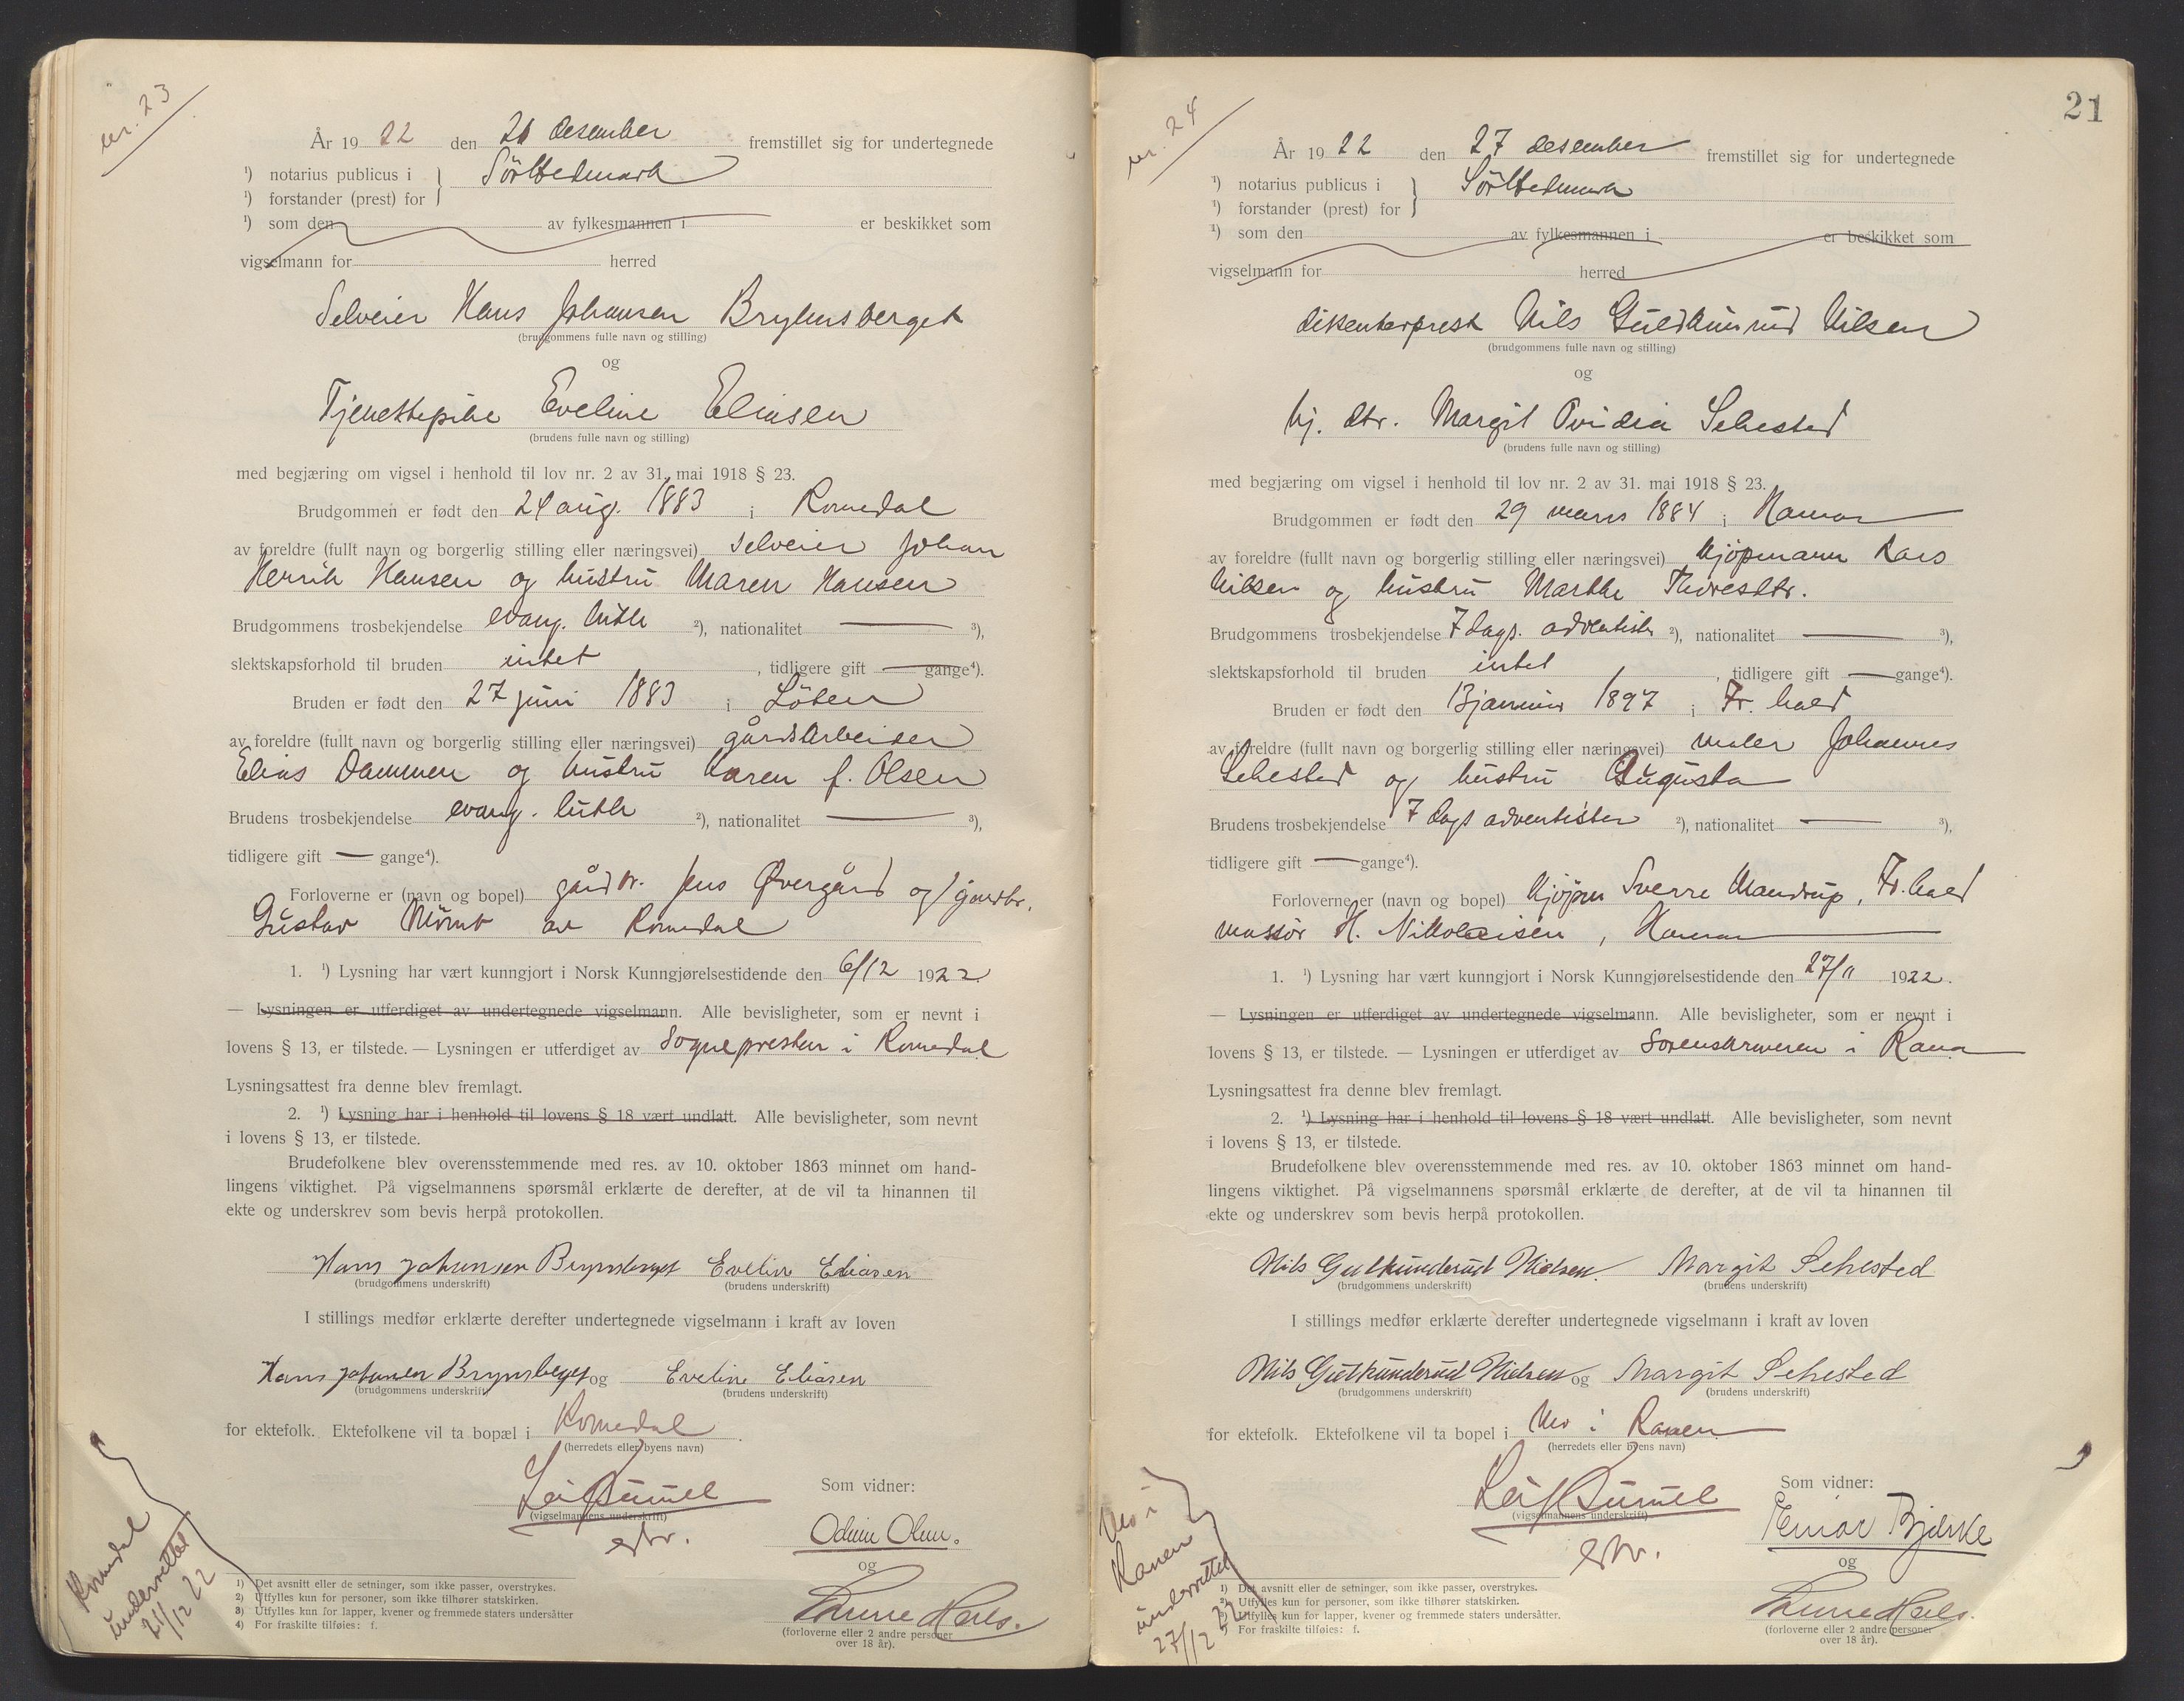 nr. 23
År 1922 den 21 desember fremstillet sig for undertegnede
¹) notarius publicus i } Sörhedmark
¹) forstander (prest) for
¹) som den av fylkesmannen i er beskikket som
vigselmann for herred
Selveier Hans Johansen Brynsberget
(brudgommens fulle navn og stilling)
og
Tjenestepike Eveline Eliasen
(brudens fulle navn og stilling)
med begjæring om vigsel i henhold til lov nr. 2 av 31. mai 1918 § 23.
Brudgommen er født den 24 aug. 1883 i Romedal
av foreldre (fullt navn og borgerlig stilling eller næringsvei) selveier Johan
Henrik Hansen og hustru Maren Hansen
Brudgommens trosbekjendelse evang. luth ²), nationalitet — ³),
slektskapsforhold til bruden intet , tidligere gift — gange⁴).
Bruden er født den 27 juni 1883 i Löten
av foreldre (fullt navn og borgerlig stilling eller næringsvei) gårdsarbeider
Elias Dammen og hustru Karen f. Olsen
Brudens trosbekjendelse evang. luth ²), nationalitet — ³),
tidligere gift — gange⁴).
Forloverne er (navn og bopel) gårdbr. Jens Øvergård og gårdbr.
Gustav av Romedal
1. ¹) Lysning har vært kunngjort i Norsk Kunngjørelsestidende den 6/12 1922
— Lysningen er utferdiget av undertegnede vigselmann. Alle bevisligheter, som er nevnt i
lovens § 13, er tilstede. — Lysningen er utferdiget av Sognepresten i Romedal
Lysningsattest fra denne blev fremlagt.
2. ¹) Lysning har i henhold til lovens § 18 vært undlatt. Alle bevisligheter, som nevnt
i lovens § 13, er tilstede.
Brudefolkene blev overensstemmende med res. av 10. oktober 1863 minnet om hand-
lingens viktighet. På vigselmannens spørsmål erklærte de derefter, at de vil ta hinannen til
ekte og underskrev som bevis herpå protokollen.
Hans Johansen Brynsberget Evelin Eliasen
(brudgommens underskrift) (brudens underskrift)
I stillings medfør erklærte derefter undertegnede vigselmann i kraft av loven
Hans Johansen Brynsberget og Eveline Eliasen
(brudgommens underskrift) (brudens underskrift)
for ektefolk. Ektefolkene vil ta bopæl i Romedal .
(herredets eller byens navn)
Som vidner:
(vigselmannens underskrift)
Odin Olsen.
og
Romedal
underrettet
21/12 22
1) Det avsnitt eller de setninger, som ikke passer, overstrykes.
2) Utfylles kun for personer, som ikke tilhører statskirken.
3) Utfylles kun for lapper, kvener og fremmede staters undersåtter
4) For fraskilte tilføies: f.
(forloverne eller 2 andre personer
over 18 år).
21
nr. 24
År 1922 den 27 desember fremstillet sig for undertegnede
¹) notarius publicus i } Sörhedmark
¹) forstander (prest) for
¹) som den av fylkesmannen i er beskikket som
vigselmann for herred
dissenterprest Nils Guldkunrud Nilsen
(brudgommens fulle navn og stilling)
og
hj. dtr. Margit Ovidia Sehested
(brudens fulle navn og stilling)
med begjæring om vigsel i henhold til lov nr. 2 av 31. mai 1918 § 23.
Brudgommen er født den 29 mars 1884 i Hamar
av foreldre (fullt navn og borgerlig stilling eller næringsvei) kjöpmann Lars
Nilsen og hustru Marthe Thoresdtr.
Brudgommens trosbekjendelse 7 dags. adventister ²), nationalitet — ³),
slektskapsforhold til bruden intet , tidligere gift — gange⁴).
Bruden er født den 13 januar 1897 i Fr. hald
av foreldre (fullt navn og borgerlig stilling eller næringsvei) maler Johannes
Sehested og hustru Augusta
Brudens trosbekjendelse 7 dags adventister ²), nationalitet — ³),
tidligere gift — gange⁴).
Forloverne er (navn og bopel) kjöpm Sverre Mandrup, Fr. hald
massör H. Nikolaisen, Hamar
1. ¹) Lysning har vært kunngjort i Norsk Kunngjørelsestidende den 27/11 1922.
— Lysningen er utferdiget av undertegnede vigselmann. Alle bevisligheter, som er nevnt i
lovens § 13, er tilstede. — Lysningen er utferdiget av Sorenskriveren i Rana
Lysningsattest fra denne blev fremlagt.
2. ¹) Lysning har i henhold til lovens § 18 vært undlatt. Alle bevisligheter, som nevnt
i lovens § 13, er tilstede.
Brudefolkene blev overensstemmende med res. av 10. oktober 1863 minnet om hand-
lingens viktighet. På vigselmannens spørsmål erklærte de derefter, at de vil ta hinannen til
ekte og underskrev som bevis herpå protokollen.
Nils Gulkunderud Nielsen. Margit Sehested
(brudgommens underskrift) (brudens underskrift)
I stillings medfør erklærte derefter undertegnede vigselmann i kraft av loven
Nils Gulkunderud Nielsen og Margit Sehested
(brudgommens underskrift) (brudens underskrift)
for ektefolk. Ektefolkene vil ta bopel i Mo i Ranen
(herredets eller byens navn)
Som vidner:
(vigselmannens underskrift)
Einar Bjerke
og
Mo i
Ranen
underrettet
27/12 22
1) Det avsnitt eller de setninger, som ikke passer, overstrykes.
2) Utfylles kun for personer, som ikke tilhører statskirken.
3) Utfylles kun for lapper, kvener og fremmede staters undersåtter.
For fraskilte tilføies: f.
(forloverne eller 2 andre personer
over 18 år).